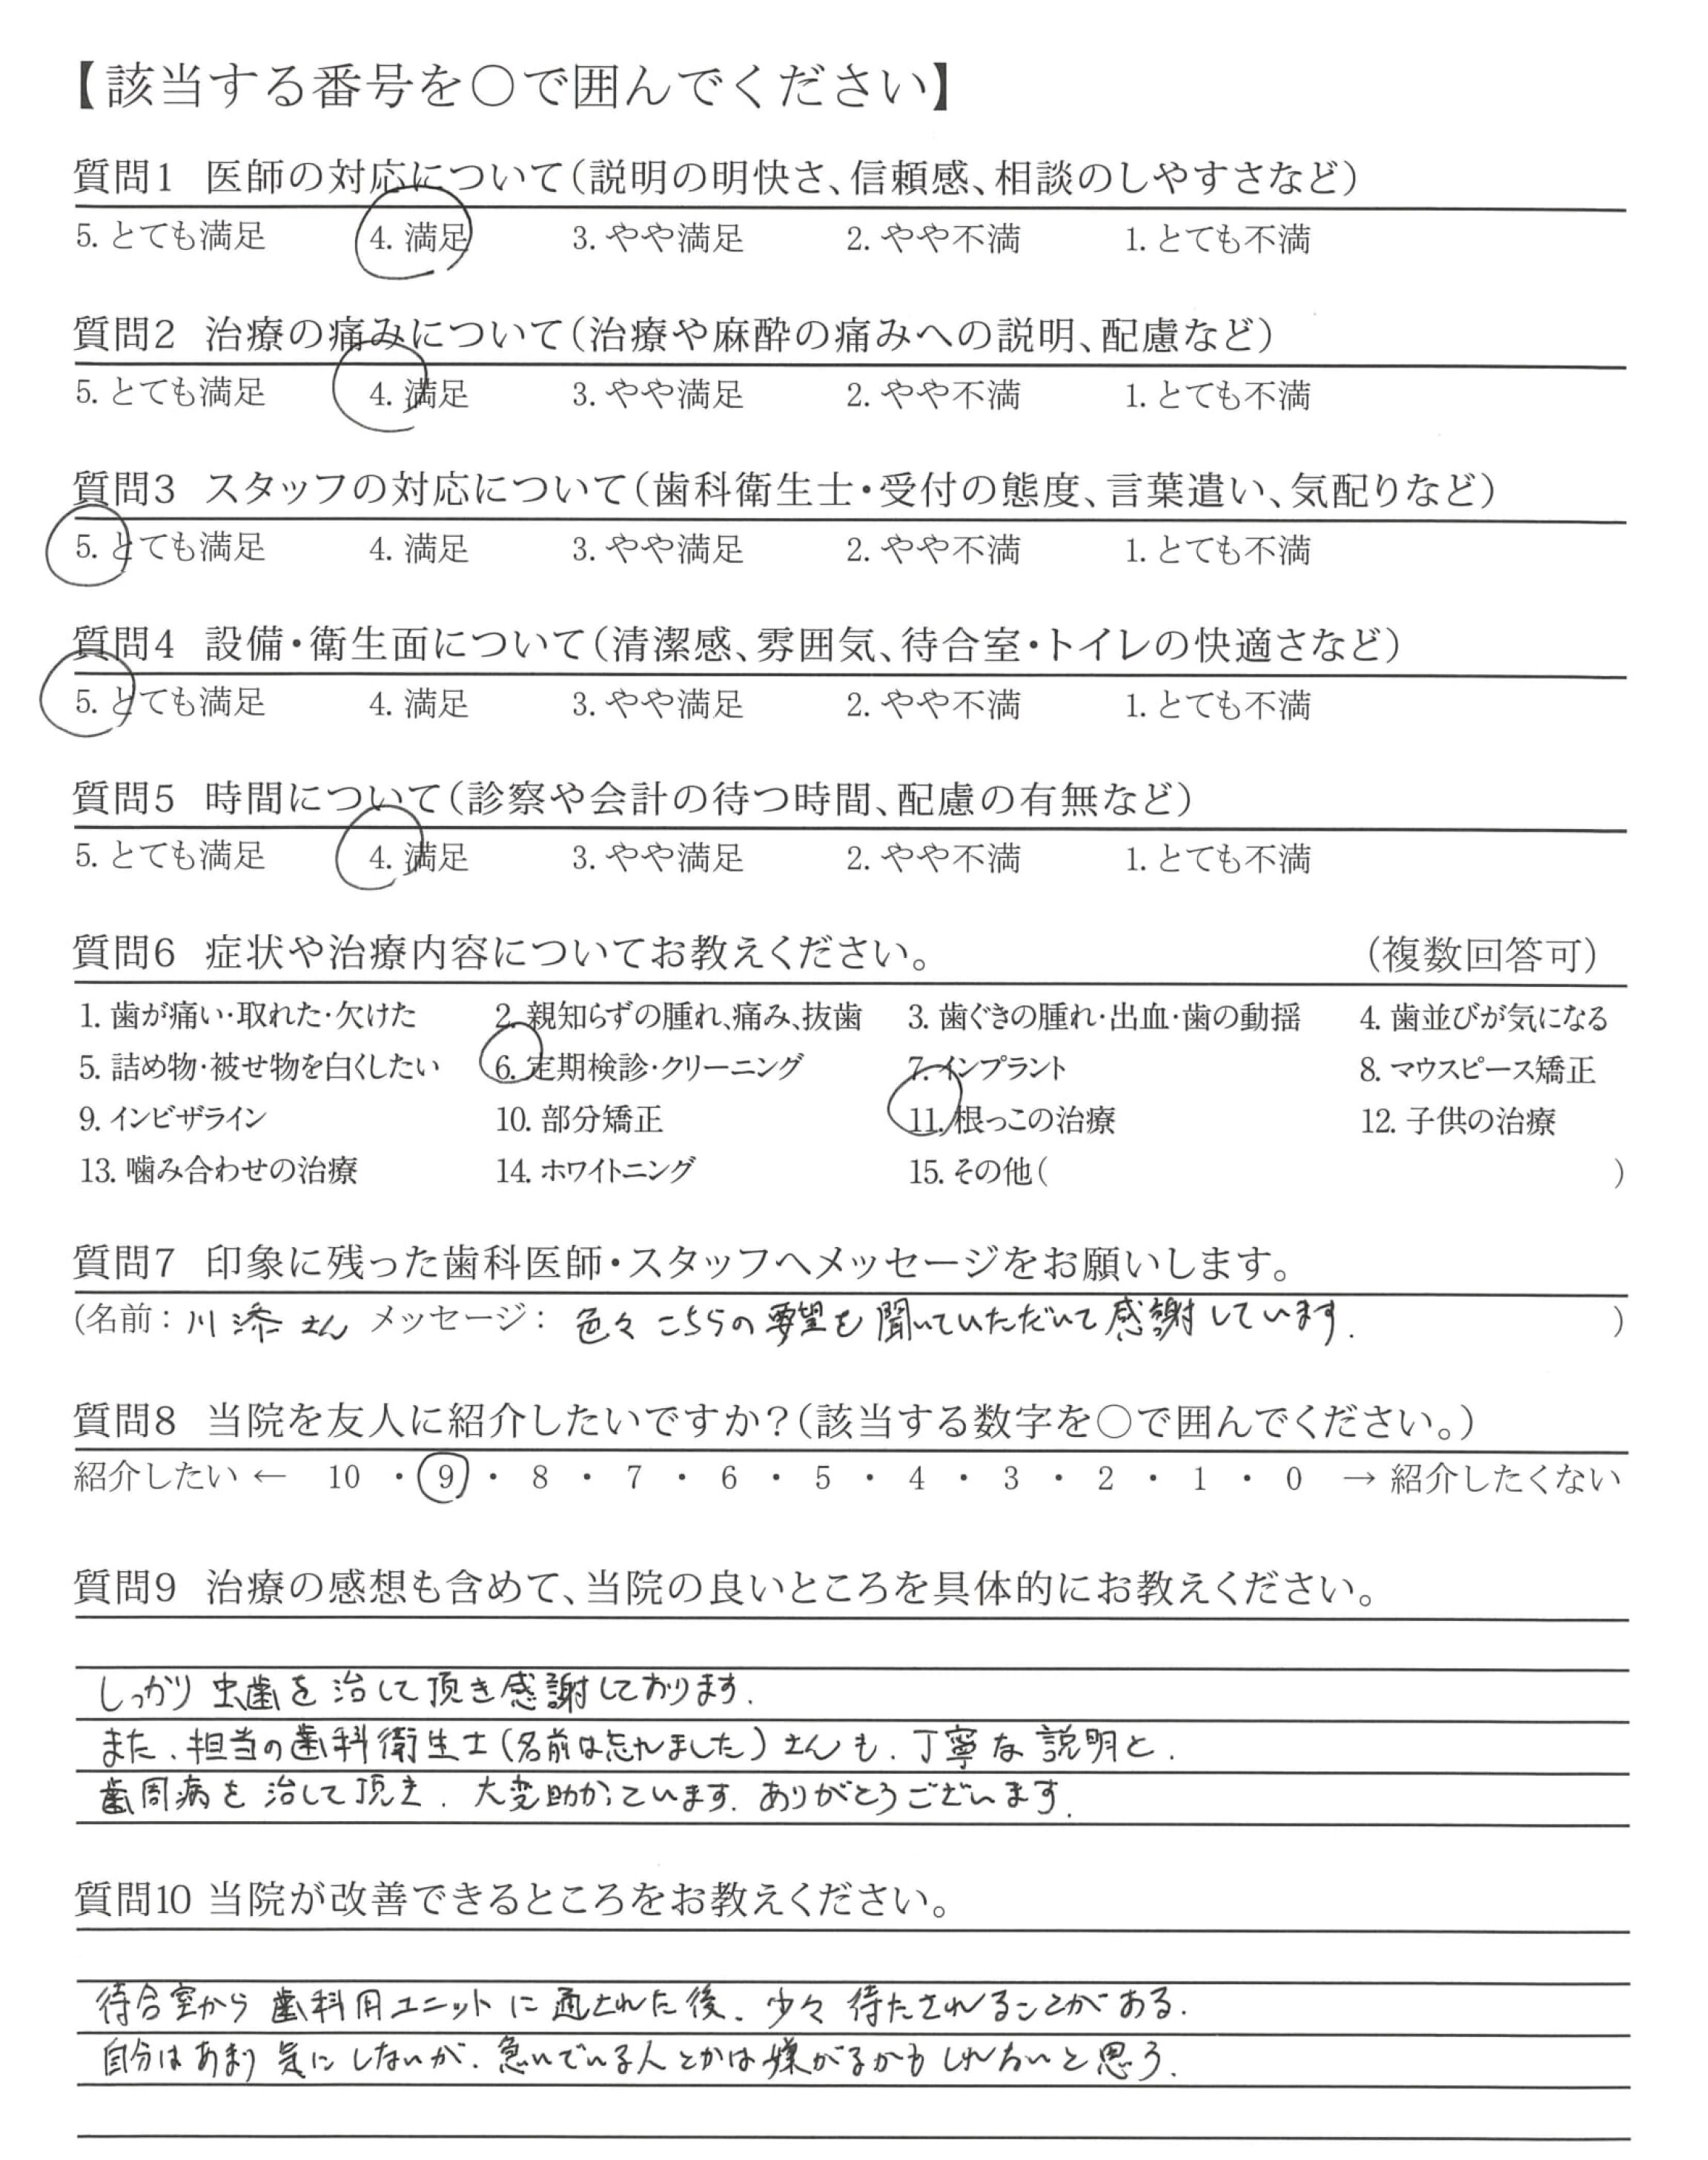 【該当する番号を○で囲んでください】
質問1 医師の対応について(説明の明快さ、信頼感、相談のしやすさなど)
5. とても満足 4. 満足 3. やや満足 2. やや不満 1. とても不満
質問2 治療の痛みについて(治療や麻酔の痛みへの説明、配慮など)
5. とても満足 4. 満足 3. やや満足 2. やや不満 1. とても不満
質問3 スタッフの対応について(歯科衛生士・受付の態度、言葉遣い、気配りなど)
5. とても満足 4. 満足 3. やや満足 2. やや不満 1. とても不満
質問4 設備・衛生面について(清潔感、雰囲気、待合室・トイレの快適さなど)
5. とても満足 4. 満足 3. やや満足 2. やや不満 1. とても不満
質問5 時間について(診察や会計の待つ時間、配慮の有無など)
5. とても満足 4. 満足 3. やや満足 2. やや不満 1. とても不満
質問6 症状や治療内容についてお教えください。 (複数回答可)
1. 歯が痛い・取れた・欠けた 2. 親知らずの腫れ、痛み、抜歯 3. 歯ぐきの腫れ・出血・歯の動揺 4. 歯並びが気になる
5. 詰め物・被せ物を白くしたい 6. 定期検診・クリーニング 7. インプラント 8. マウスピース矯正
9. インビザライン 10. 部分矯正 11. 根っこの治療 12. 子供の治療
13. 噛み合わせの治療 14. ホワイトニング 15. その他( )
質問7 印象に残った歯科医師・スタッフへメッセージをお願いします。
(名前: 川添さん メッセージ: 色々こちらの要望を聞いていただいて感謝しています. )
質問8 当院を友人に紹介したいですか?(該当する数字を○で囲んでください。)
紹介したい ← 10 ・ 9 ・ 8 ・ 7 ・ 6 ・ 5 ・ 4 ・ 3 ・ 2 ・ 1 ・ 0 → 紹介したくない
質問9 治療の感想も含めて、当院の良いところを具体的にお教えください。
しっかり虫歯を治して頂き感謝しております.
また、担当の歯科衛生士(名前は忘れました)さんも、丁寧な説明と、
歯周病を治して頂き、大変助かっています. ありがとうございます.
質問10 当院が改善できるところをお教えください。
待合室から歯科用ユニットに通された後、少々待たされることがある.
自分はあまり気にしないが、急いでいる人とかは嫌がるかもしれないと思う.